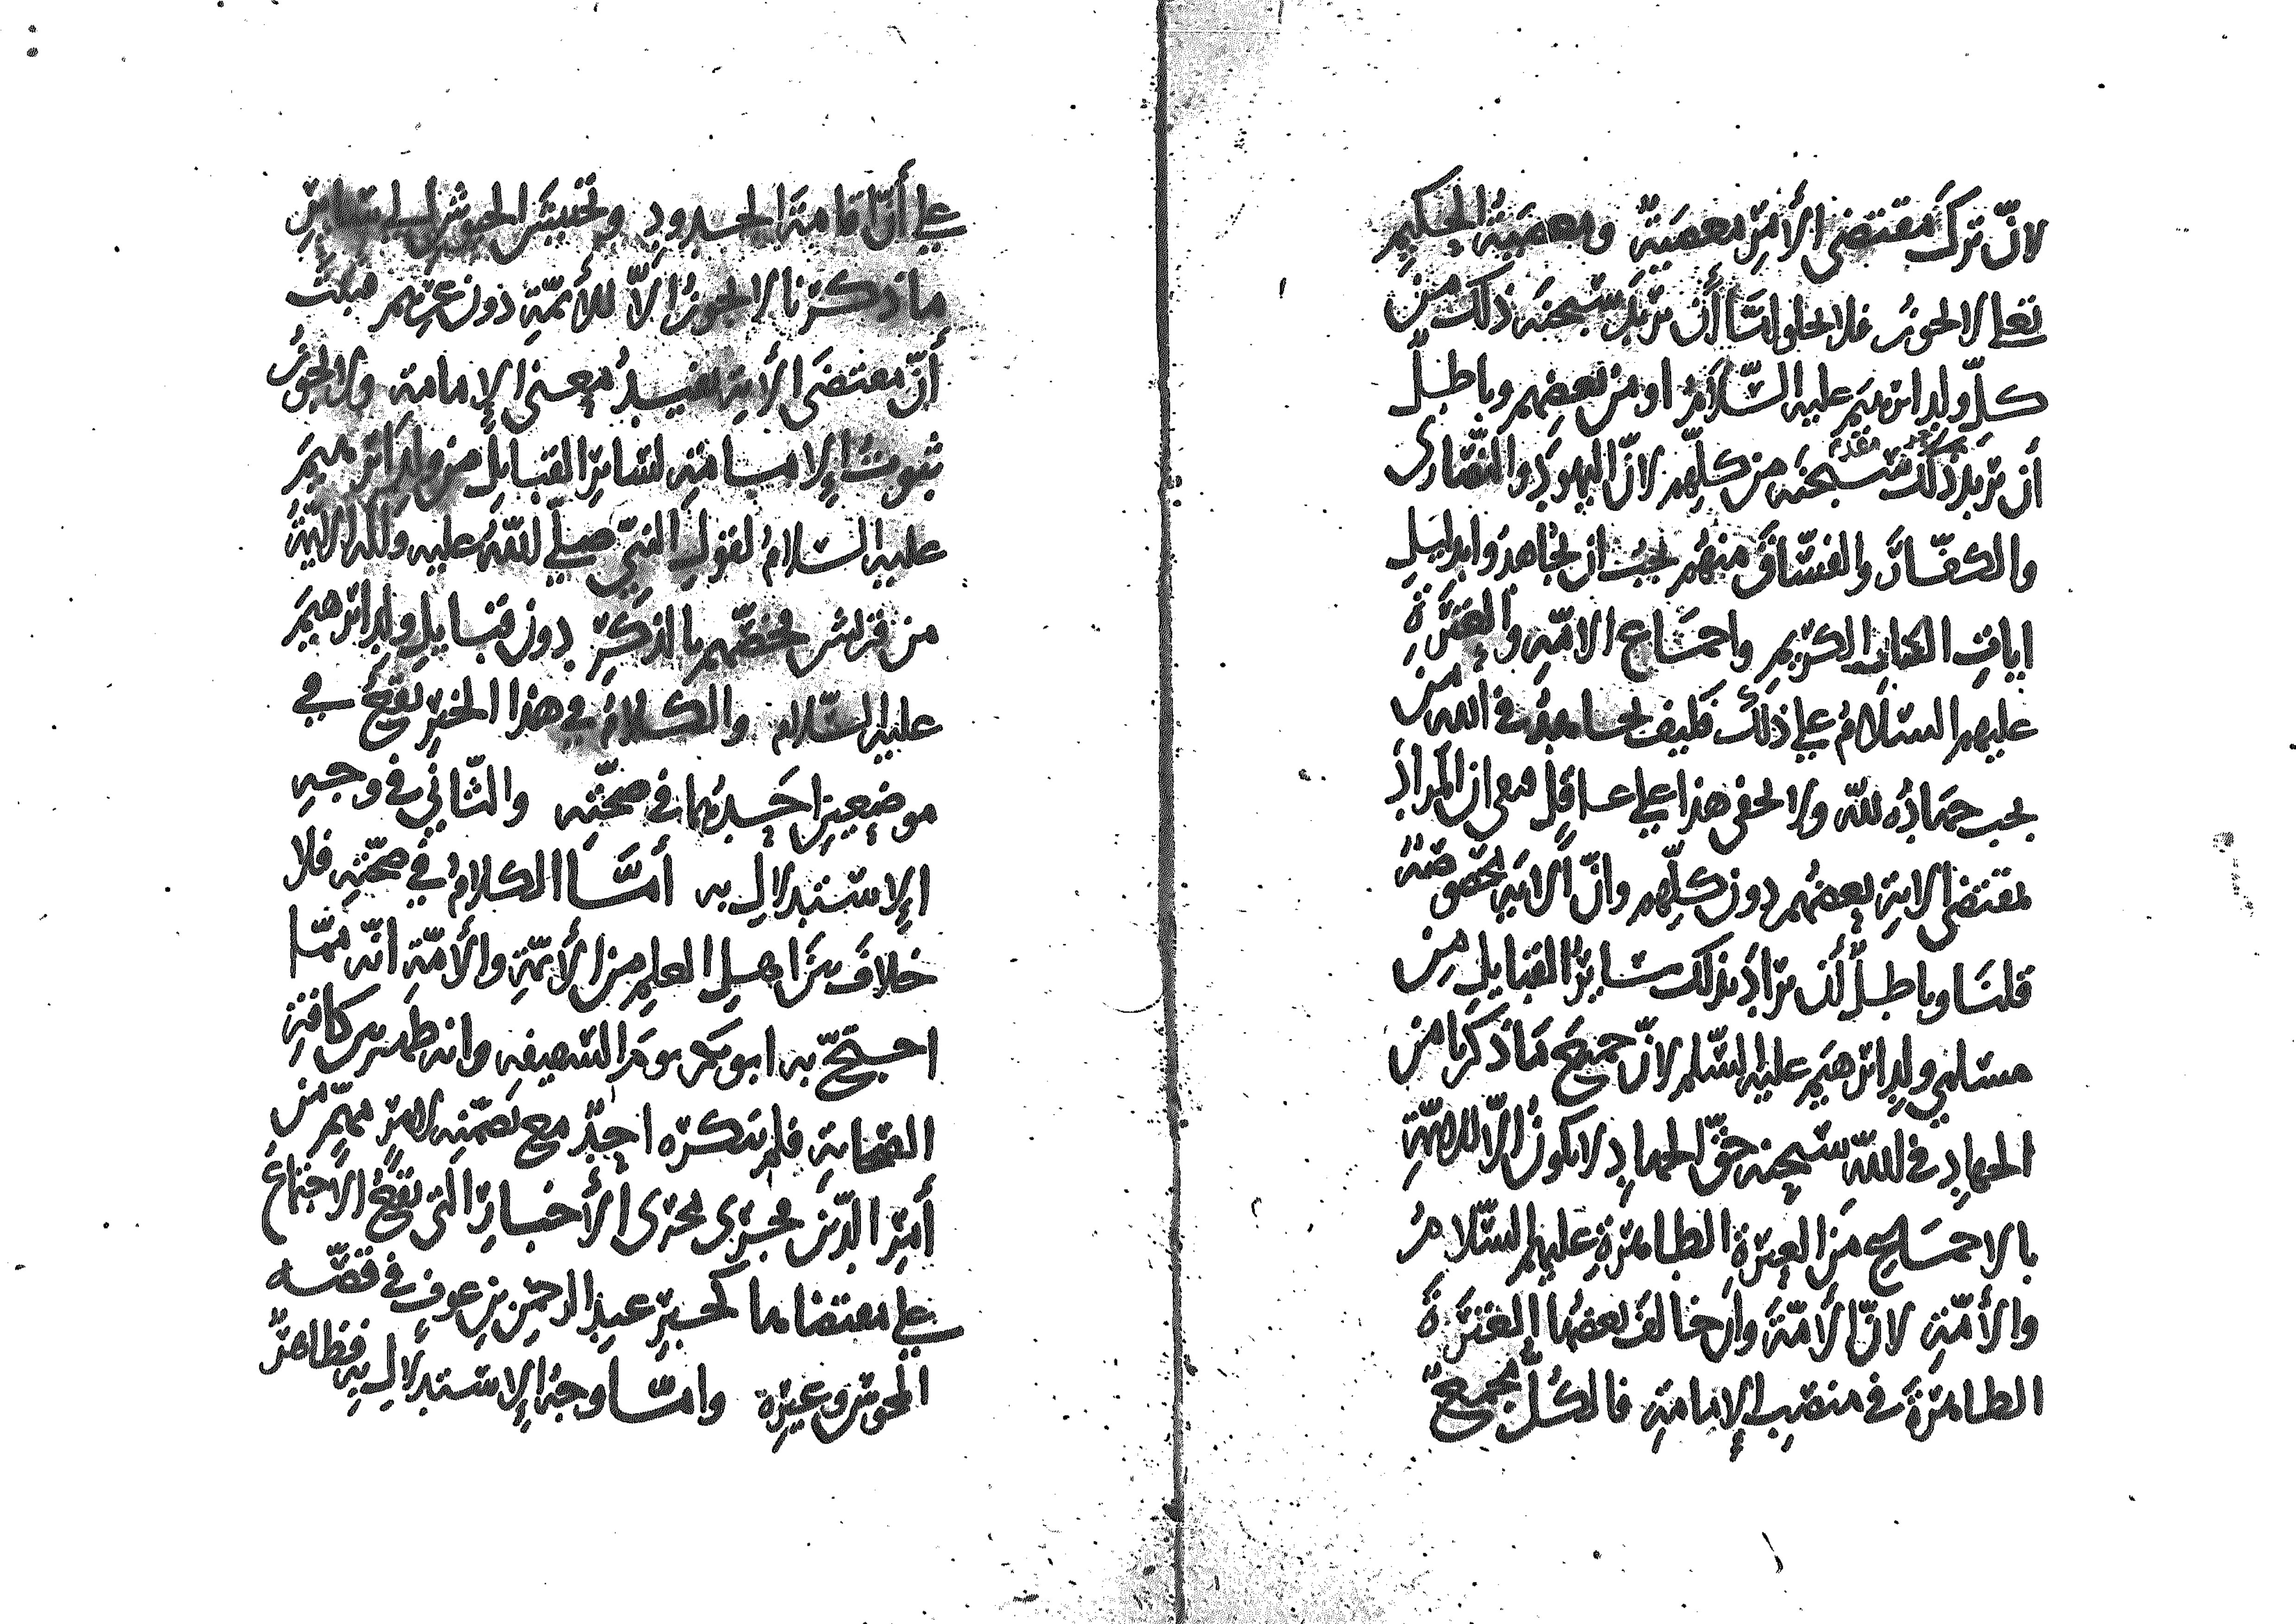 لانّ ترك مقتضى الأمر معصية ومعصية الحكيم
تعلى لا تجوز فلا يخلوا امّا أن يريد سبحنه ذلك من
كلّ ولد ابرهيم عليه السّلام او من بعضهم وباطل
أن يريد ذلك سبحنه من كلّهم لانّ اليهود والنّصارى
والكفّار والفسّاق منهم يجب ان يجاهدوا بدليل
ايات الكتاب الكريم واجماع الامّة والعترة
عليهم السّلام على ذلك فكيف يجاهد في الله من
يجب جهاده لله ولا يخفى هذا على عاقل فبقي ان المراد
بمقتضى الاية بعضهم دون كلّهم وانّ الاية مخصوصة
قلنا وباطل أن يراد بذلك سائر القبايل من
مسلمي ولد ابرهيم عليه السّلم لانّ جميع ما ذكرنا من
الجهاد في الله سبحنه حقّ الجهاد لا يكون الّا للايمّة
بالاجماع من العترة الطاهرة عليهم السّلام
والأمّة لانّ الأمّة وان خالف بعضها العترة
الطاهرة في منصب الإمامة فالكلّ مجمع
على أنّ اقامة الحدود وتجييش الجيوش الى ساير
ما ذكرنا لا يجوز الّا للأيمّة دون غيرهم فثبت
أنّ مقتضى الأية يفيد معنى الإمامة ولا يجوز
ثبوت الإمامة لساير القبايل من ولد ابرهيم
عليه السلام لقول النبي صلى الله عليه وآله الأيمّة
من قريش فخصّهم بالذكر دون قبايل ولد ابرهيم
عليه السّلام والكلام في هذا الخبر يقع في
موضعين احدهما في صحّته والثّاني في وجه
الإستدلال به أمّا الكلام في صحّته فلا
خلاف بين اهل العلم من الأيمّة والأمّة انّه ممّا
احتجّ به ابو بكر يوم السّقيفة وانه ظهر بين كافة
الصّحابة فلم ينكره احد مع تضمّنه لامر مهمّ من
أمر الدّين فجرى مجرى الأخبار التي يقع الاجماع
على مقتضاها كخبر عبد الرحمن بن عوف في قصّة
المجوس وغيره وامّا وجه الإستدلال به فظاهر